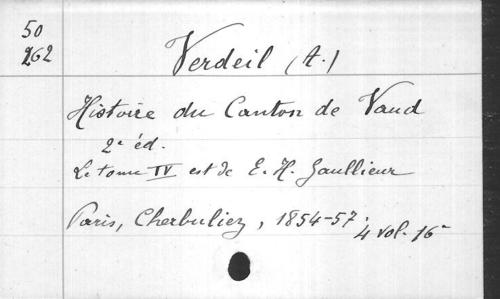 50
262
Verdeil (A.)
Histoire du Canton de Vaud
2e éd.
Le tome IV est de E. H. Gaullieur
Paris, Cherbuliez, 1854-57.
4 vol. 16°